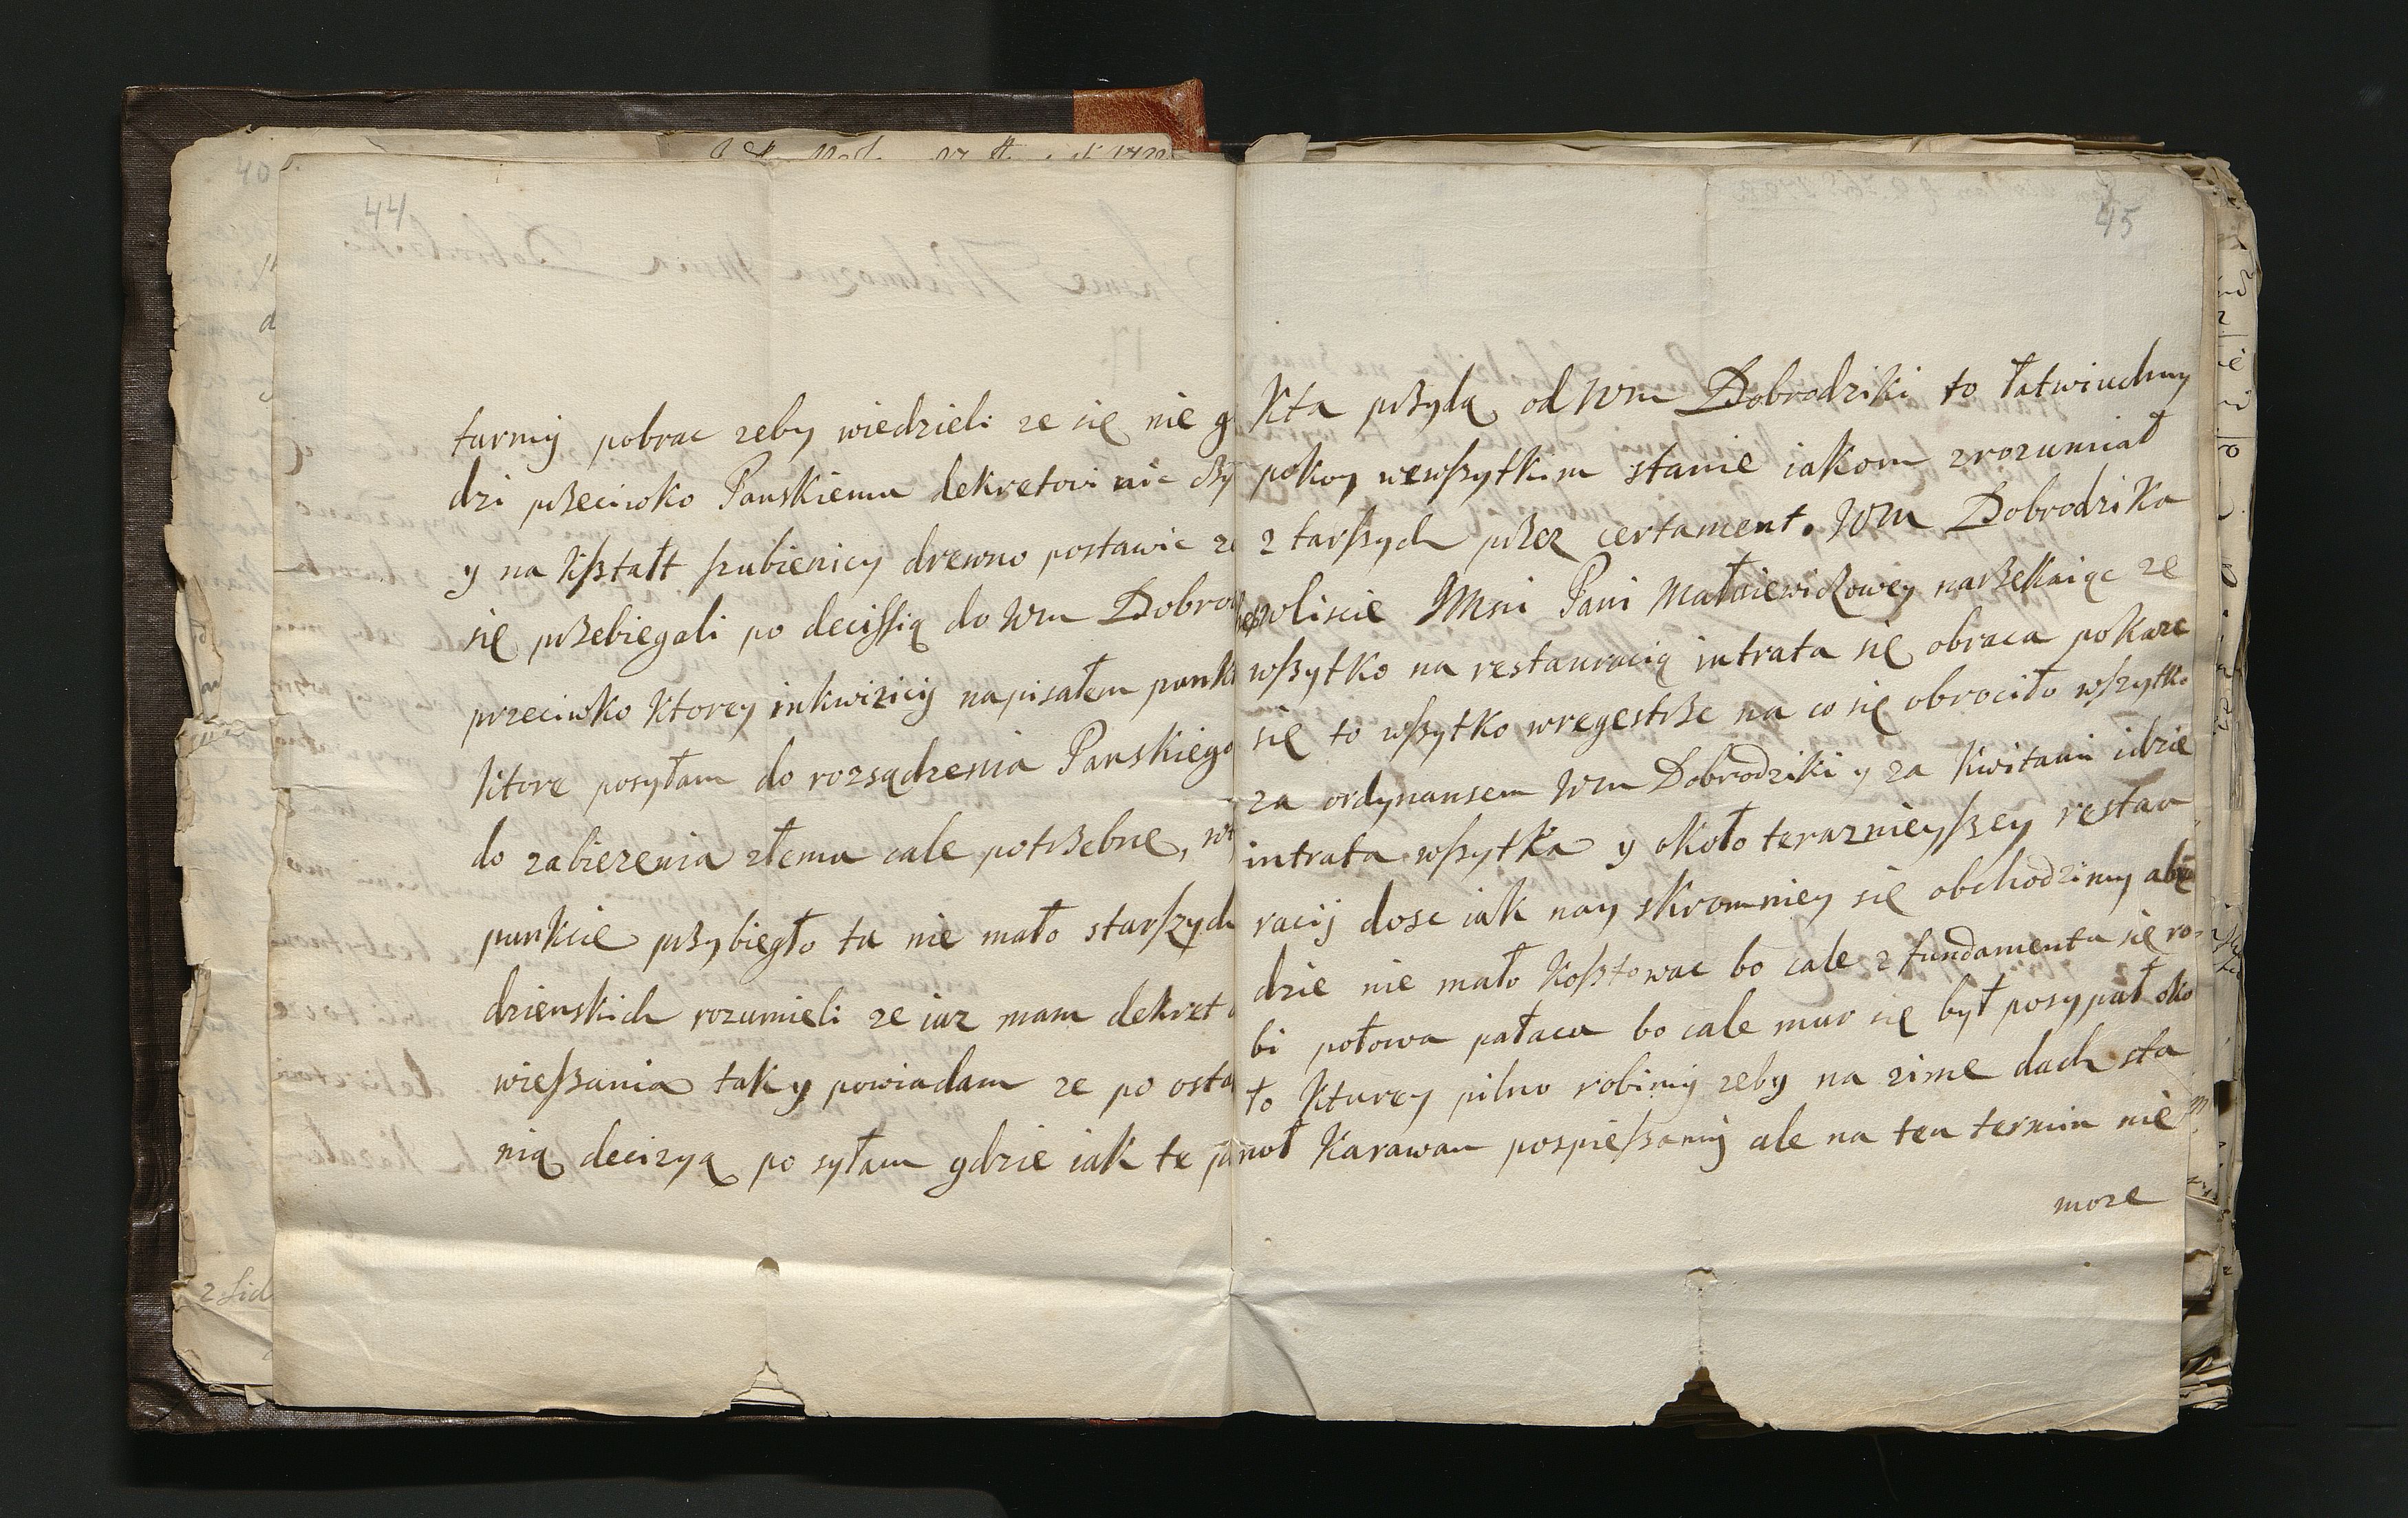 44
turmy pobrac zeby wiedzieli ze się nie g
dzi pszeciwko Panskiemu dekretowi nic
y na kształt szubienicy drewno postawic ze
się pszebiegali po decissią do Wm Dobrod
przeciwko ktorey inkwizicij napisałem punk
ktore posyłam do rozsądzenia Panskiego
do zabiezenia złemu cale potszebne,
punkcie pszybiegło tu nie mało starszych
dzienskich rozumieli ze iuz mam dekret
wieszania tak y powiadam ze po osta
nią decizyą po syłam gdzie iak te pu
45
kta pszydą od Wm Dobrodziki to łatwiuchny
pokoy wewszytkim stanie iakom zrozumiał
z tarszych pszez certament. Wm Dobrodzika
wliscie JMsci Pani narzekaiąc ze
wszytko na restauracią intrata się obraca pokaze
się to wszytko wregestsze na co się obrociło wszytko
za ordynansem Wm Dobrodziki y za kwitami idzie
intrata wszytka y około teraznieyszey restau
racij dosc iak nay skromniey się obchodzimy a bę
dzie nie mało kosztowac bo cale z fundamentu się ro
bi połowa pałacu bo cale mur się był posypał oko
ło kturey pilno robimy zeby na zime dach sta
noł Karawan pospieszamy ale na ten termin nie
moze